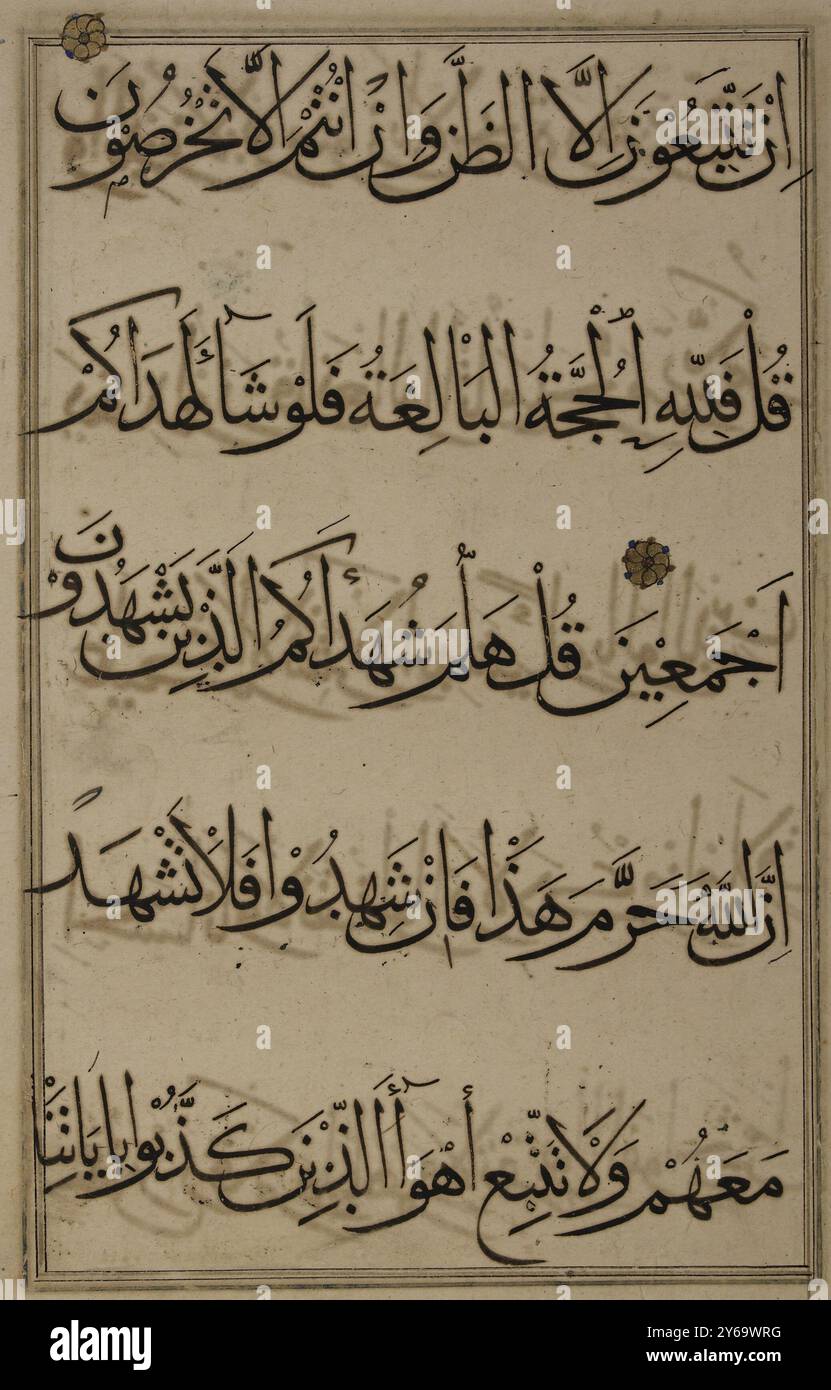 اِنْ تَتَّبِعُونَ اِلَّا الظَّنَّ وَاِنْ اَنْتُمْ اِلَّا تَخْرُصُوْنَ
قُلْ فَلِلّٰهِ الْحُجَّةُ الْبَالِغَةُ فَلَوْ شَآءَ لَهَدَاكُمْ
اَجْمَعِيْنَ قُلْ هَلُمَّ شُهَدَآءَكُمُ الَّذِيْنَ يَشْهَدُوْنَ
اِنَّ اللّٰهَ حَرَّمَ هَذَا فَاِنْ شَهِدُوْا فَلَا تَشْهَدْ
مَعَهُمْ وَلَا تَتَّبِعْ أَهْوَآءَ الَّذِيْنَ كَذَّبُوا بِاٰيَاتِنَا
alamy
Image ID: 2Y69WRG
www.alamy.com